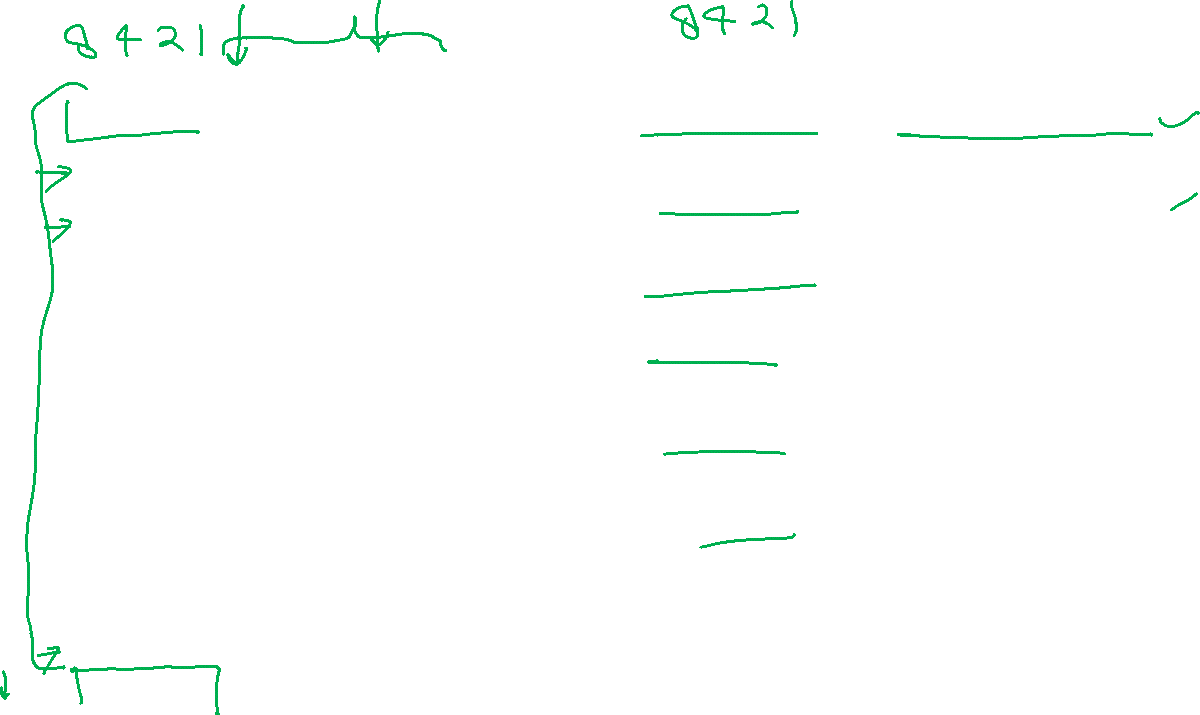 8421 8421